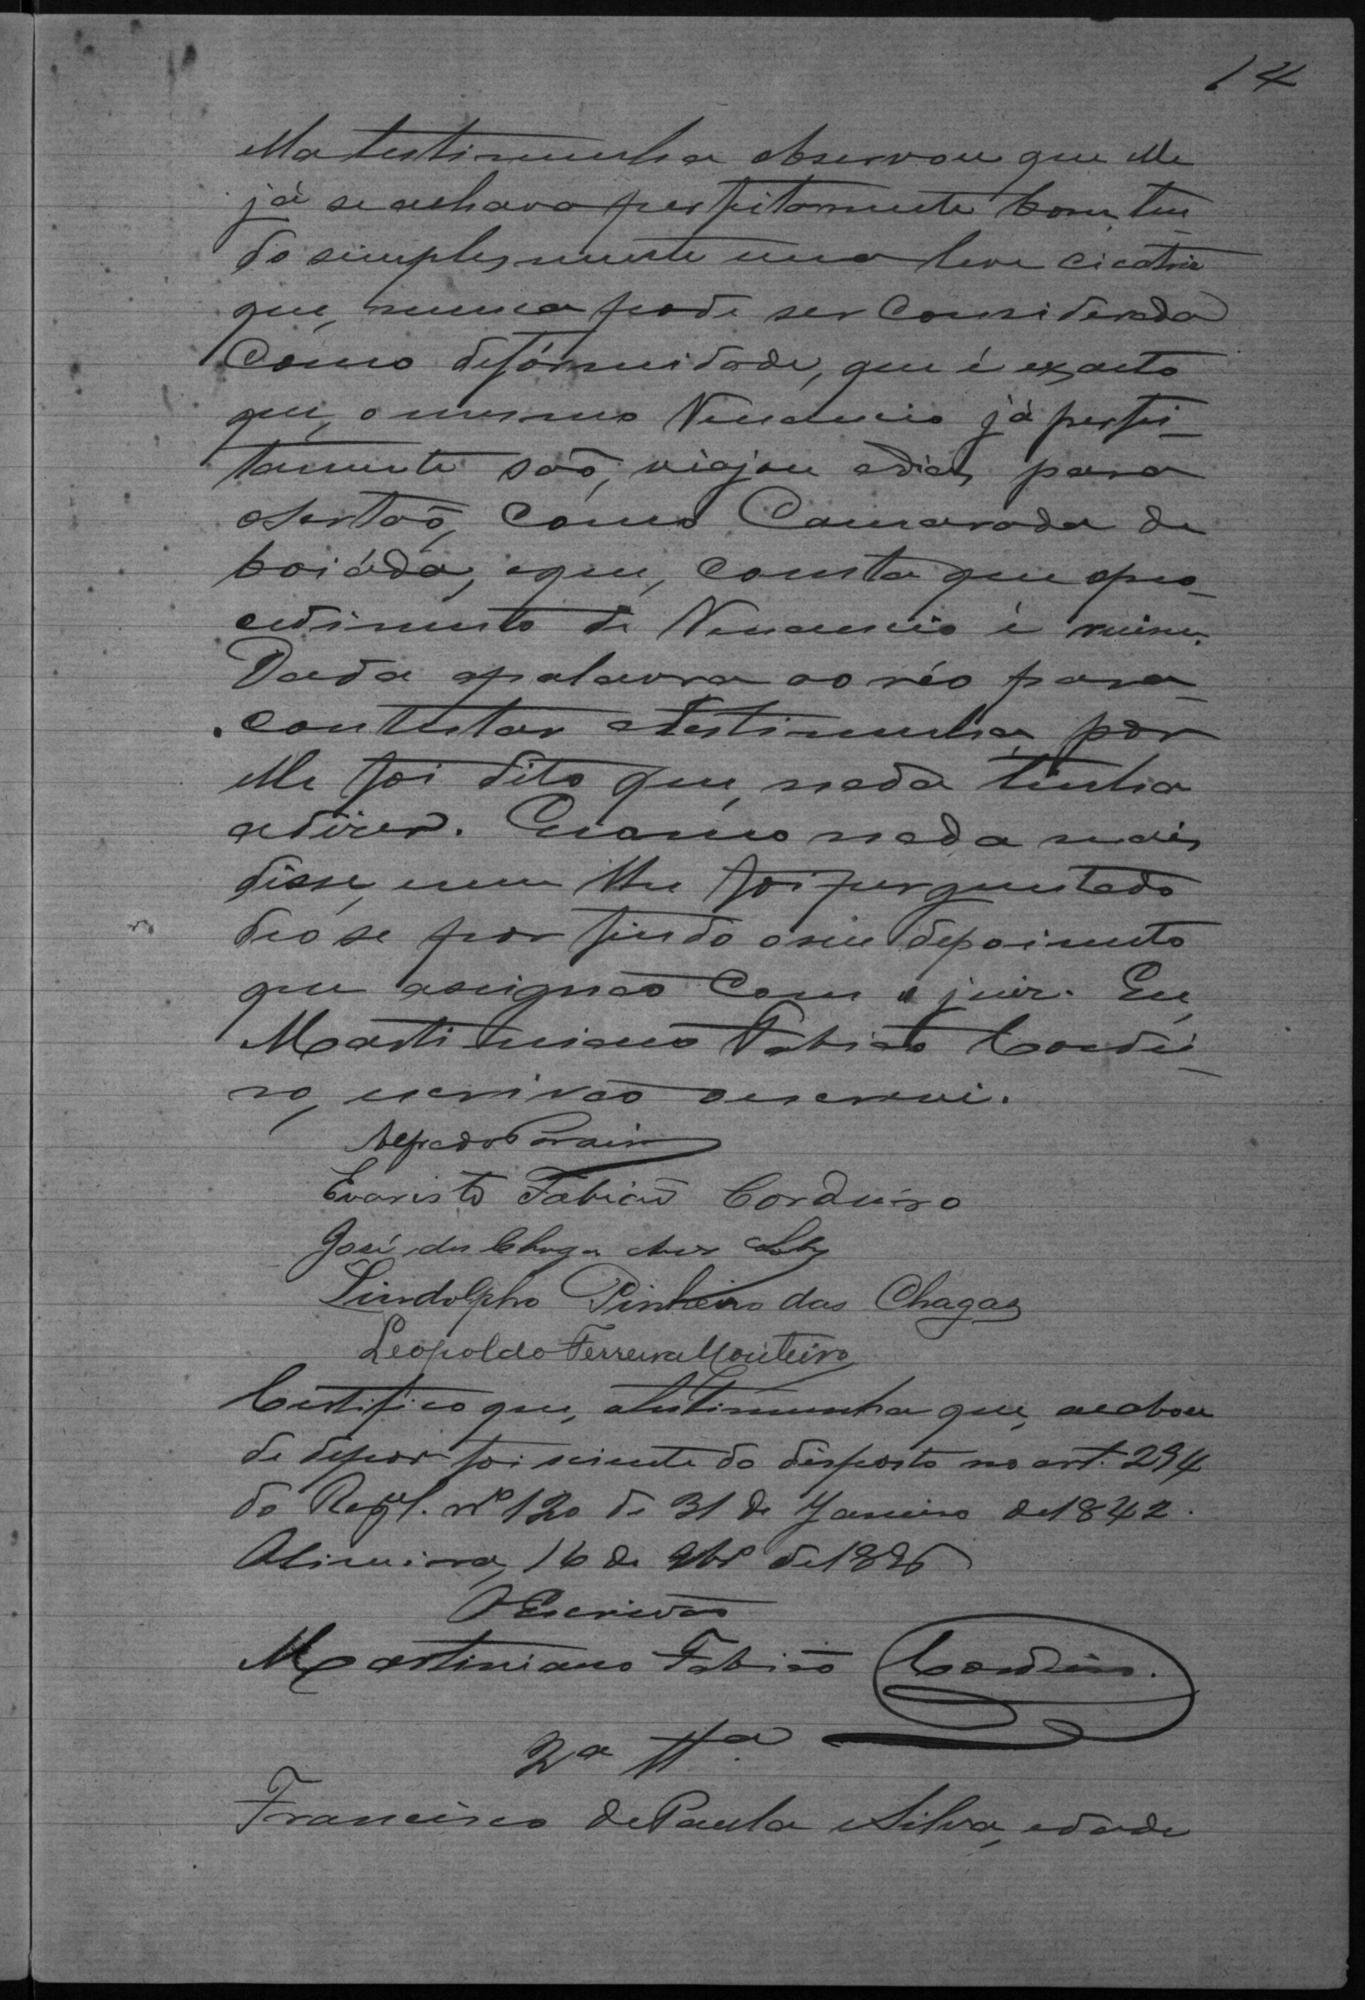 14
ella testimunha observou que elle
já se achava perfeitamente bom, ten
do simplesmente uma leve cicatriz
que, nunca pode ser considerada
como defórmidade, que é exacto
que, o mesmo Venancio já perfei-
tamente são, viajou a dias para
o sertão, como camarada de
boiáda, e que, consta que o pro-
cedimento de Venancio é ruim.
Dada a palavra ao réo para
contestar a testimunha, por
elle foi dito que, nada tinha
a dizer. E como nada mais
disse, nem lhe foi perguntado
deo se por findo o seu depoimento
que assignão com o juiz. Eu,
Martiniano Fabião Cordei-
ro, escrivão o escrevi.
Alfredo
Evaristo Fabião Cordeiro
José das Chagas
Lindolpho Pinheiro das Chagas
Leopoldo Ferreira Monteiro
Certifico que, a testimunha que, acabou
de depor foi sciente do disposto no art. 294
do Regl. nº 120 de 31 de Janeiro de 1842.
16 de 9bro de 1896
O Escrivão
Martiniano Fabião Cordeiro.
2ª Ttª
Francisco de Paula e Silva, edade